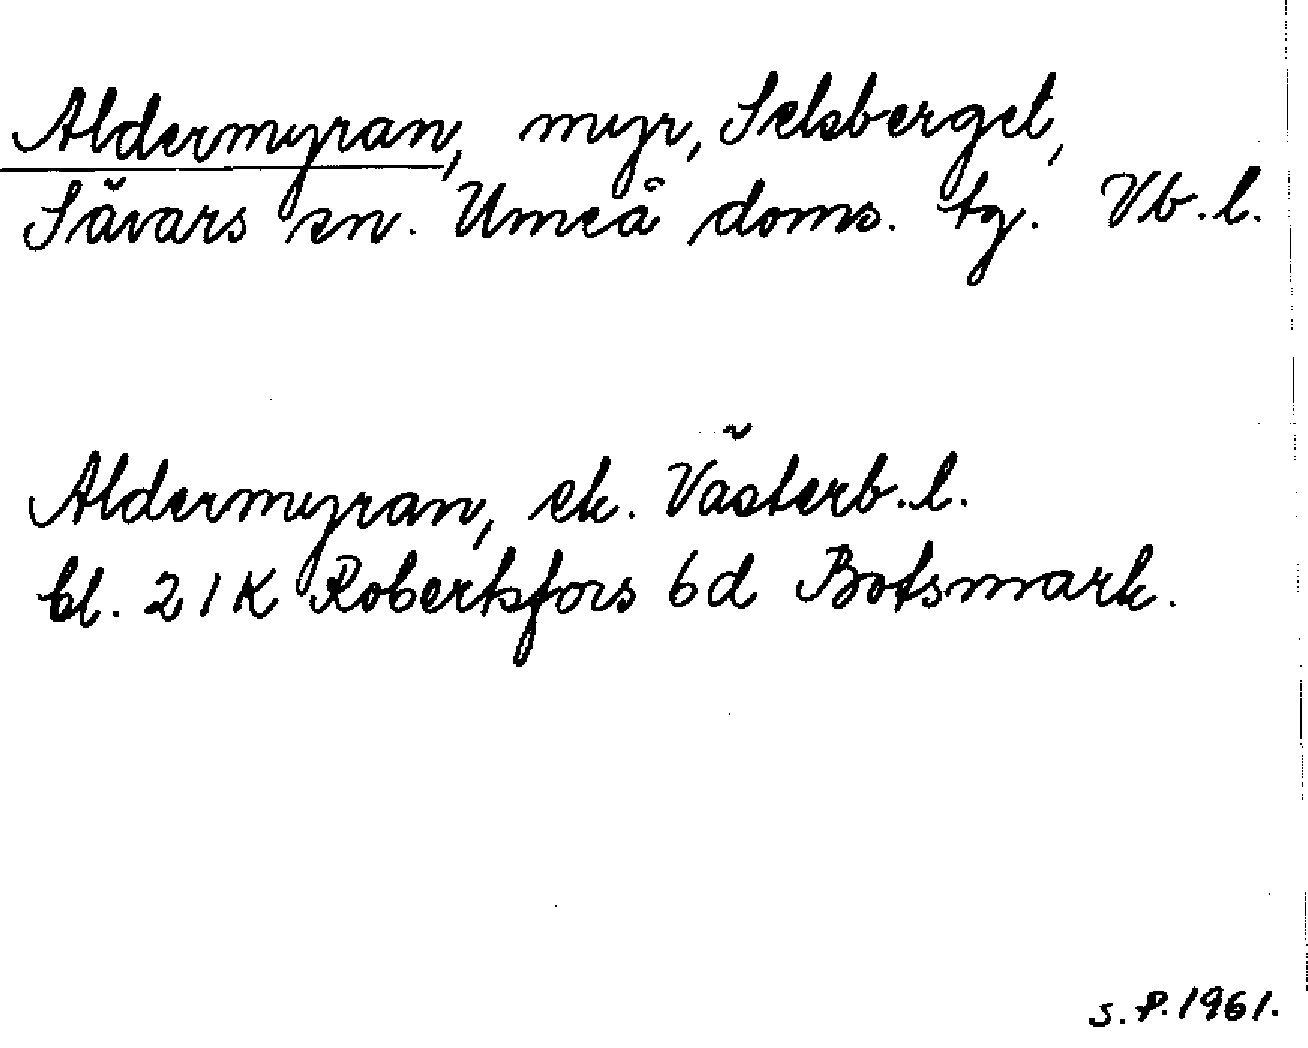 Aldermyran, myr, Selsberget,
Sävars sn. Umeå doms. tg. Vb.l.
Aldermyran, ek. Västerb.l.
bl. 21K Robertsfors 6d Botsmark.
S.P.1961.